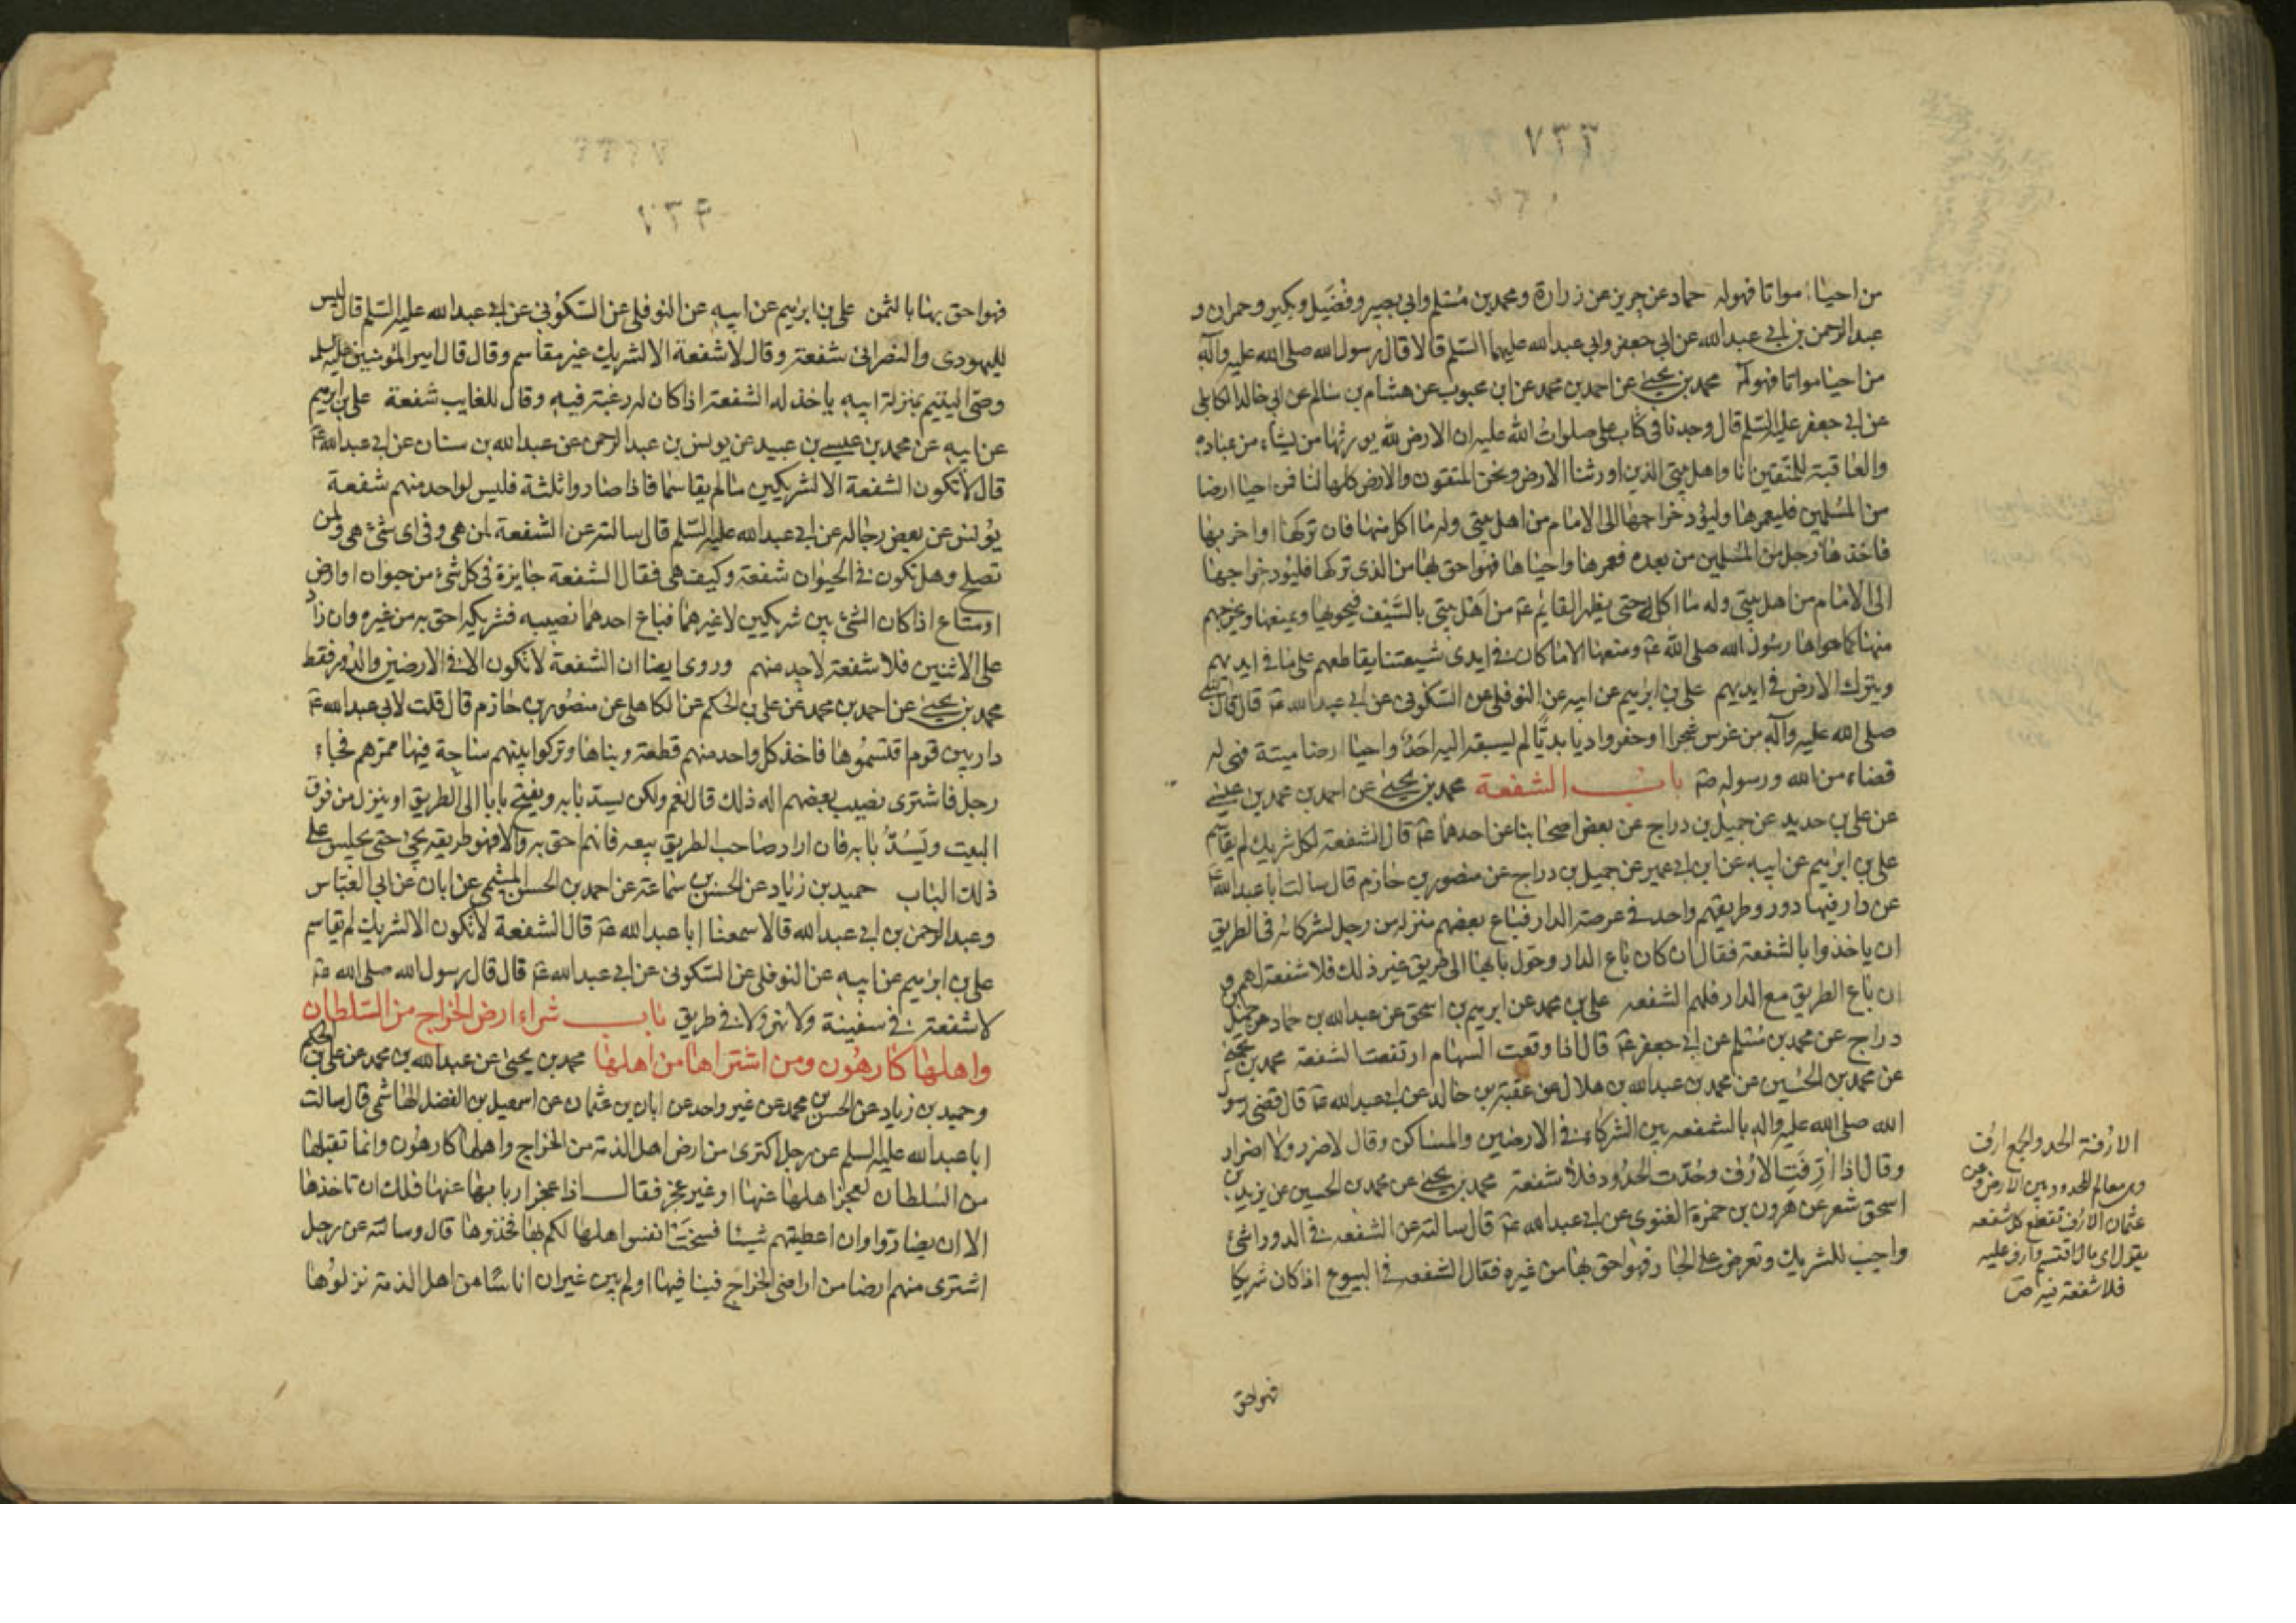 ٧٣٣
من احيا مواتا فهوله حماد عن حريز عن زرارة ومحمد بن مسلم وابي بصير وفضيل وبكير وحمران و
عبد الرحمن بن ابي عبد الله عن ابي جعفر وابي عبد الله عليهما السلم قالا قال رسول الله صلى الله عليه وآله
من احيا مواتا فهوله محمد بن يحيى عن احمد بن محمد عن ابن محبوب عن هشام بن سالم عن ابي خالد الكابلي
عن ابي جعفر عليه السلم قال وجدنا في كتاب علي صلوات الله عليه ان الارض لله يورثها من يشاء من عباده
والعاقبة للمتقين انا واهل بيتي الذين اورثنا الارض ونحن المتقون والارض كلها لنا فمن احيا ارضا
من المسلمين فليعمرها وليؤد خراجها الى الامام من اهل بيتي وله ما اكل منها فان تركها او اخربها
فاخذها رجل من المسلمين من بعده فعمرها واحياها فهو احق بها من الذي تركها فليؤد خراجها
الى الامام من اهل بيتي وله ما اكل حتى يظهر القايم ع من اهل بيتي بالسيف فيحويها ويمنعها ويخرجهم
منها كما حواها رسول الله صلى الله ع ومنعها الا ما كان في ايدي شيعتنا يقاطعهم على ما في ايديهم
ويترك الارض في ايديهم علي بن ابرهيم عن ابيه عن النوفلي عن السكوني عن ابي عبد الله ع قال قال النبي
صلى الله عليه وآله من غرس شجرا او حفر واديا بديّا لم يسبقه اليه احد واحيا ارضا ميتة فهي له
قضاء من الله ورسوله ص باب الشفعة محمد بن يحيى عن احمد بن محمد بن عيسى
عن علي بن حديد عن جميل بن دراج عن بعض اصحابنا عن احدهما ع قال الشفعة لكل شريك لم يقاسم
علي بن ابرهيم عن ابيه عن ابن ابي عمير عن جميل بن دراج عن منصور بن حازم قال سالت ابا عبد الله ع
عن دار فيها دور وطريقهم واحد في عرصة الدار فباع بعضهم منزله من رجل لشركائه في الطريق
ان ياخذوا بالشفعة فقال ان كان باع الدار وحول بابها الى طريق غير ذلك فلا شفعة لهم و
ان باع الطريق مع الدار فلهم الشفعه علي بن محمد عن ابرهيم بن اسحق عن عبد الله بن حماد عن جميل بن
دراج عن محمد بن مسلم عن ابي جعفر ع قال اذا وقعت السهام ارتفعت الشفعة محمد بن يحيى
عن محمد بن الحسين عن محمد بن عبد الله بن هلال عن عقبة بن خالد عن ابي عبد الله ع قال قضى رسول
الله صلى الله عليه واله بالشفعه بين الشركاء في الارضين والمساكن وقال لا ضرر ولا اضرار
وقال اذا ارّفت الارف وحدّت الحدود فلا شفعة محمد بن يحيى عن محمد بن الحسين عن يزيد بن
اسحق شعر عن هرون بن حمزة الغنوي عن ابي عبد الله ع قال سالته عن الشفعه في الدور اشئ
واجب للشريك وتعرض على الجار فهو احق بها من غيره فقال الشفعه في البيوع اذا كان شريكا
الارفة الحد والجمع ارف
وهي معالم الحدود بين الارض وعن
عثمان الارف تقطع كل شفعه
يقول اي مال اقتسم وارف عليه
فلا شفعة فيه ص
فهو احق
٧٣٤
فهو احق بها بالثمن علي بن ابرهيم عن ابيه عن النوفلي عن السكوني عن ابي عبد الله عليه السلم قال ليس
لليهودي والنصراني شفعة وقال لا شفعة الا لشريك غير مقاسم وقال قال امير المؤمنين عليه السلم
وصي اليتيم بمنزلة ابيه ياخذ له الشفعة اذا كان له رغبة فيه وقال للغايب شفعة علي بن ابرهيم
عن ابيه عن محمد بن عيسى بن عبيد عن يونس بن عبد الرحمن عن عبد الله بن سنان عن ابي عبد الله ع
قال لا تكون الشفعة الا لشريكين ما لم يقاسما فاذا صاروا ثلثة فليس لواحد منهم شفعة
يونس عن بعض رجاله عن ابي عبد الله عليه السلم قال سالته عن الشفعة لمن هي وفي اي شئ هي ولمن
تصلح وهل تكون في الحيوان شفعة وكيف هي فقال الشفعة جايزة في كل شئ من حيوان او ارض
او متاع اذا كان الشئ بين شريكين لا غيرهما فباع احدهما نصيبه فشريكه احق به من غيره وان زاد
على الاثنين فلا شفعة لاحد منهم وروى ايضا ان الشفعة لا تكون الا في الارضين والدور فقط
محمد بن يحيى عن احمد بن محمد عن علي بن الحكم عن الكاهلي عن منصور بن حازم قال قلت لابي عبد الله ع
دار بين قوم اقتسموها فاخذ كل واحد منهم قطعة وبناها وتركوا بينهم ساحة فيها ممرهم فجاء
رجل فاشترى نصيب بعضهم اله ذلك قال نعم ولكن يسد بابه ويفتح بابا الى الطريق او ينزل من فوق
البيت ويسدّ بابه فان اراد صاحب الطريق بيعه فانهم احق به والا فهو طريقه يجئ حتى يجلس على
ذلك الباب حميد بن زياد عن الحسن بن سماعة عن احمد بن الحسن الميثمي عن ابان عن ابي العباس
وعبد الرحمن بن ابي عبد الله قالا سمعنا ابا عبد الله ع قال الشفعة لا تكون الا لشريك لم يقاسم
علي بن ابرهيم عن ابيه عن النوفلي عن السكوني عن ابي عبد الله ع قال قال رسول الله صلى الله ع
لا شفعة في سفينة ولا نهر ولا في طريق باب شراء ارض الخراج من السلطان
واهلها كارهون ومن اشتراها من اهلها محمد بن يحيى عن عبد الله بن محمد عن علي بن الحكم
وحميد بن زياد عن الحسن بن محمد عن غير واحد عن ابان بن عثمان عن اسمعيل بن الفضل الهاشمي قال سالت
ابا عبد الله عليه السلم عن رجل اكترى من ارض اهل الذمة من الخراج واهلها كارهون وانما تقبلها
من السلطان لعجز اهلها عنها او غير عجز فقال اذا عجز اربابها عنها فلك ان تاخذها
الا ان يضاروا وان اعطيتهم شيئا فسخت انفس اهلها لكم بها فخذوها قال وسالته عن رجل
اشترى منهم ارضا من اراضي الخراج فبنا فيها او لم يبن غير ان اناسا من اهل الذمة نزلوها